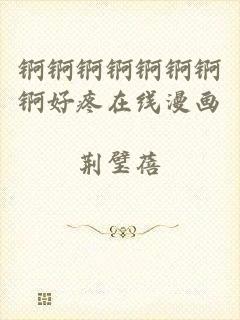 锕锕锕锕锕锕锕
锕好疼在线漫画
荆壁蓓